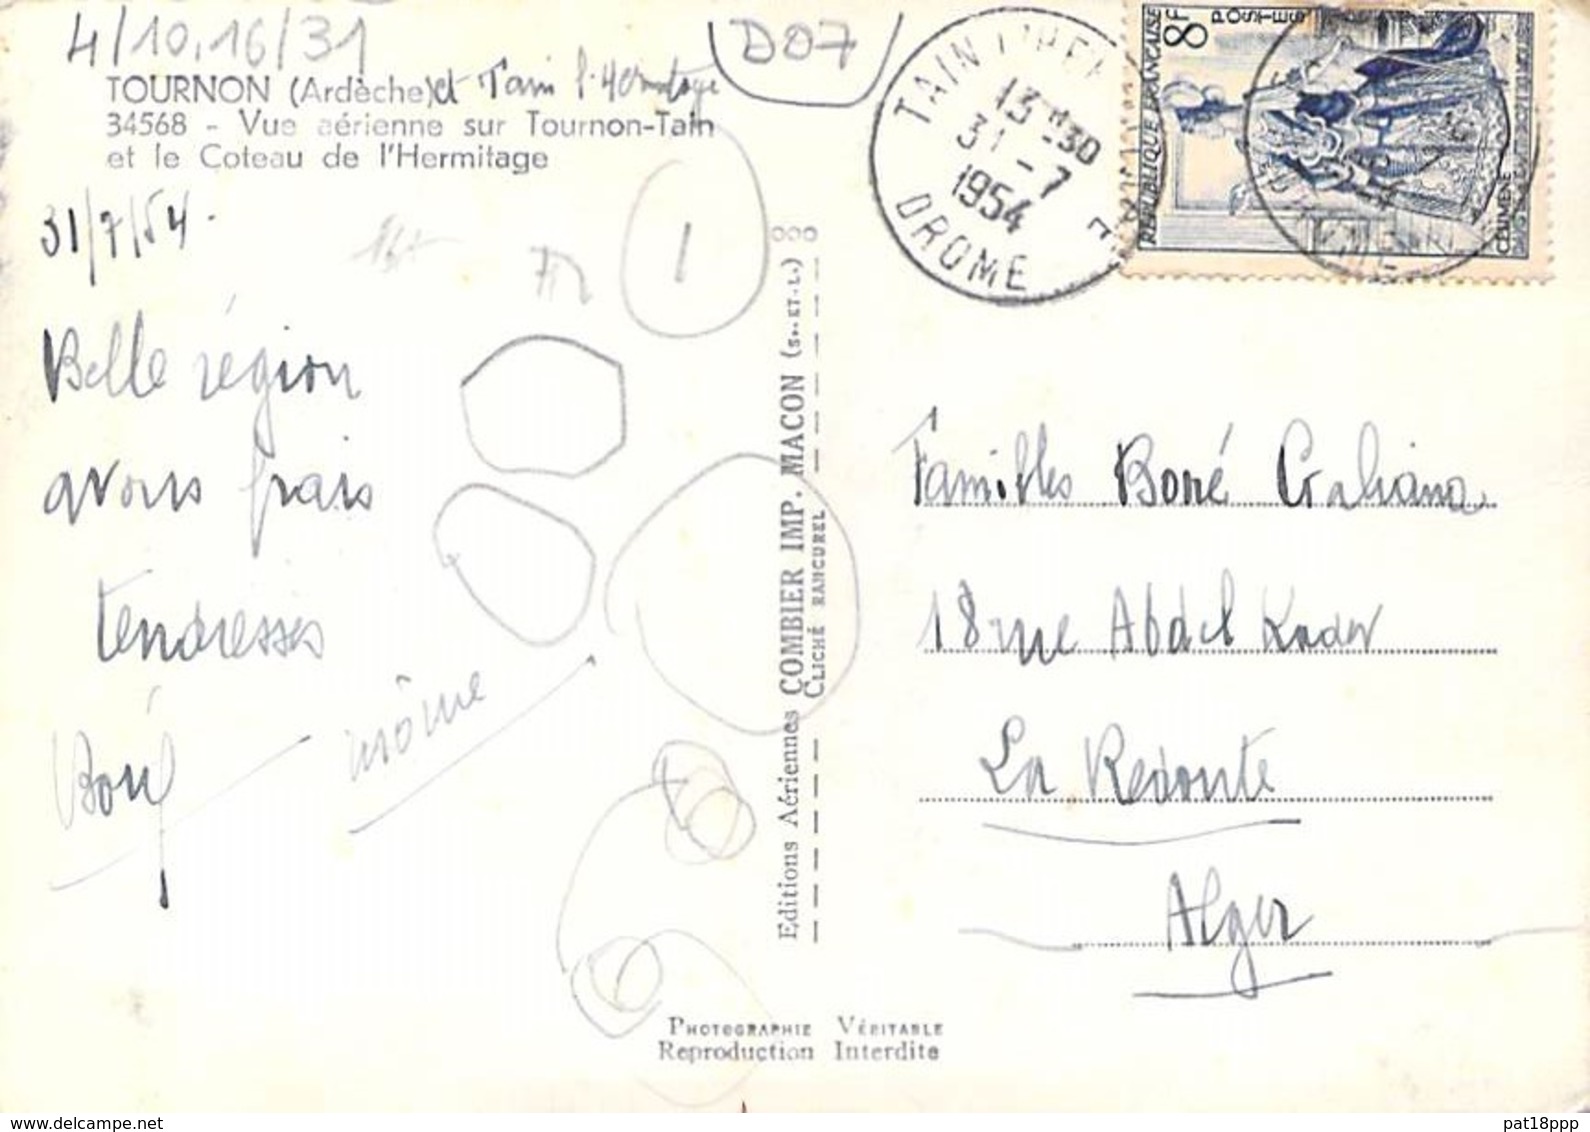 4/10.16/31
D07
TOURNON (Ardèche) et Tain l'Hermitage
34568 - Vue aérienne sur Tournon-Tain
et le Coteau de l'Hermitage
31/7/54.
Belle région
avons frais
tendresses
môme
1
Editions Aériennes COMBIER IMP. MACON (S.-ET-L.)
CLICHÉ RANCUREL
TAIN L'HER
13 H 30
31 - 7
1954
DROME
REPUBLIQUE FRANÇAISE
8F
POSTES
CELIMENE
Familles Boné Galiana
18 rue Abdel Kader
La Redoute
Alger
PHOTOGRAPHIE VÉRITABLE
Reproduction Interdite
delcampe.net
pat18ppp